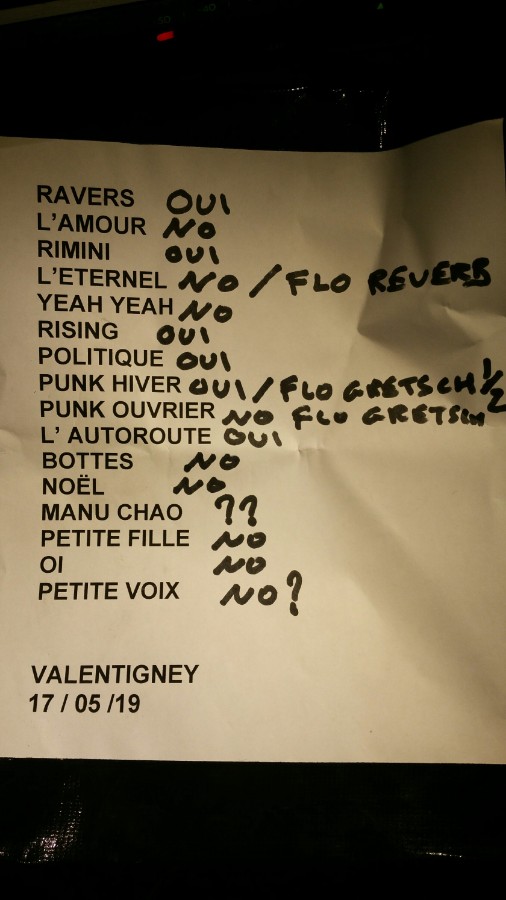 RAVERS OUI
L'AMOUR NO
RIMINI OUI
L'ETERNEL NO / FLO REVERB
YEAH YEAH NO
RISING OUI
POLITIQUE OUI
PUNK HIVER OUI / FLO GRETSCH 1/2
PUNK OUVRIER NO FLO GRETSCH
L' AUTOROUTE OUI
BOTTES NO
NOËL NO
MANU CHAO ??
PETITE FILLE NO
OI NO
PETITE VOIX NO?
VALENTIGNEY
17 / 05 /19